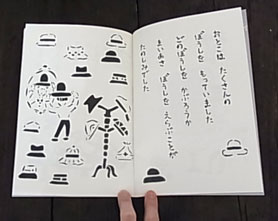 おとこは たくさんの
ぼうしを もっていました
どのぼうしを かぶろうか
ぼうしを えらぶことが
まいあさ
たのしみでした